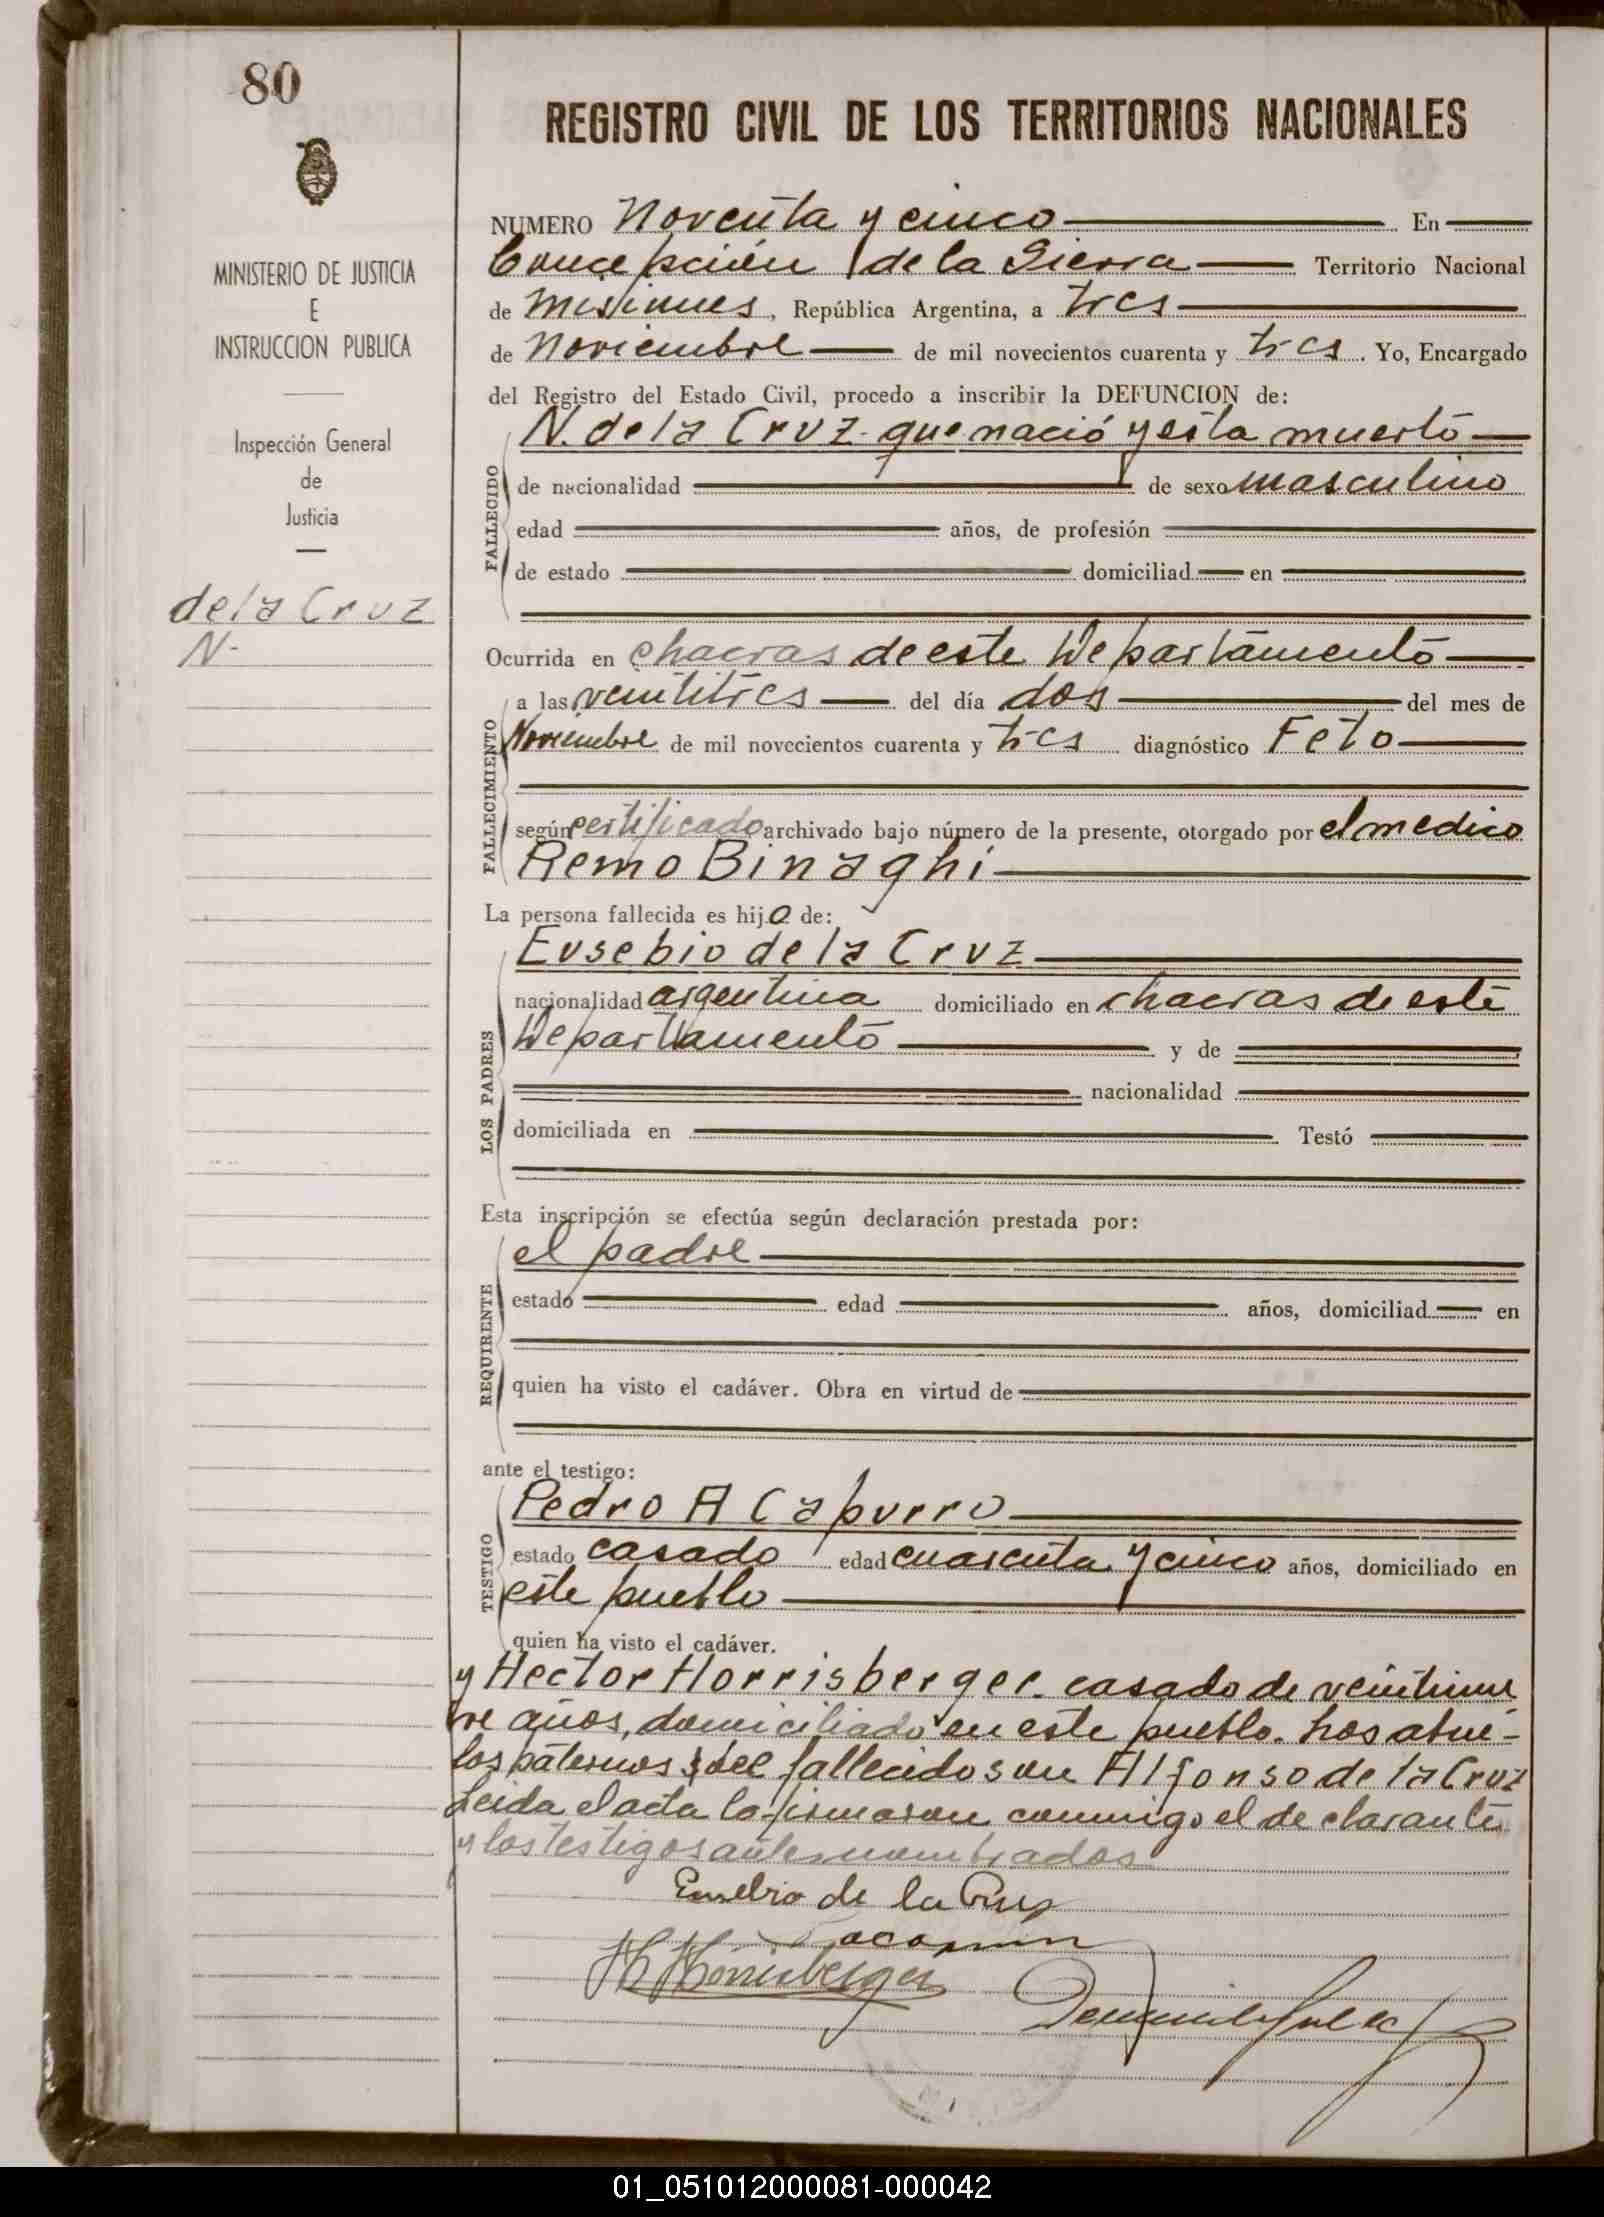 80
MINISTERIO DE JUSTICIA
E
INSTRUCCION PUBLICA
Inspección General
de
Justicia
de la Cruz
N-
REGISTRO CIVIL DE LOS TERRITORIOS NACIONALES
NUMERO Noventa y cinco En
Concepción de la Sierra Territorio Nacional
de Misiones, República Argentina, a tres
de Noviembre de mil novecientos cuarenta y tres. Yo, Encargado
del Registro del Estado Civil, procedo a inscribir la DEFUNCION de:
FALLECIDO
N. de la Cruz que nació y esta muerto
de nacionalidad de sexo masculino
edad años, de profesión
de estado domiciliad en
Ocurrida en chacras de este Departamento
FALLECIMIENTO
a las veintitres del día dos del mes de
Noviembre de mil novecientos cuarenta y tres diagnóstico Feto
según certificado archivado bajo número de la presente, otorgado por el medico
Remo Binaghi
La persona fallecida es hijo de:
LOS PADRES
Eusebio de la Cruz
nacionalidad argentina domiciliado en chacras de este
Departamento y de
nacionalidad
domiciliada en Testó
Esta inscripción se efectúa según declaración prestada por:
REQUIRENTE
el padre
estado edad años, domiciliad en
quien ha visto el cadáver. Obra en virtud de
ante el testigo:
TESTIGO
Pedro A Capurro
estado casado edad cuarenta y cinco años, domiciliado en
este pueblo
quien ha visto el cadáver.
y Hector Horrisberger casado de veintinue
ve años, domiciliado en este pueblo. Los abue-
los paternos del fallecido son Alfonso de la Cruz
Leida el acta la firmaron conmigo el declarante
y los testigos antes nombrados
Eusebio de la Cruz
H Horrisberger
01_051012000081-000042